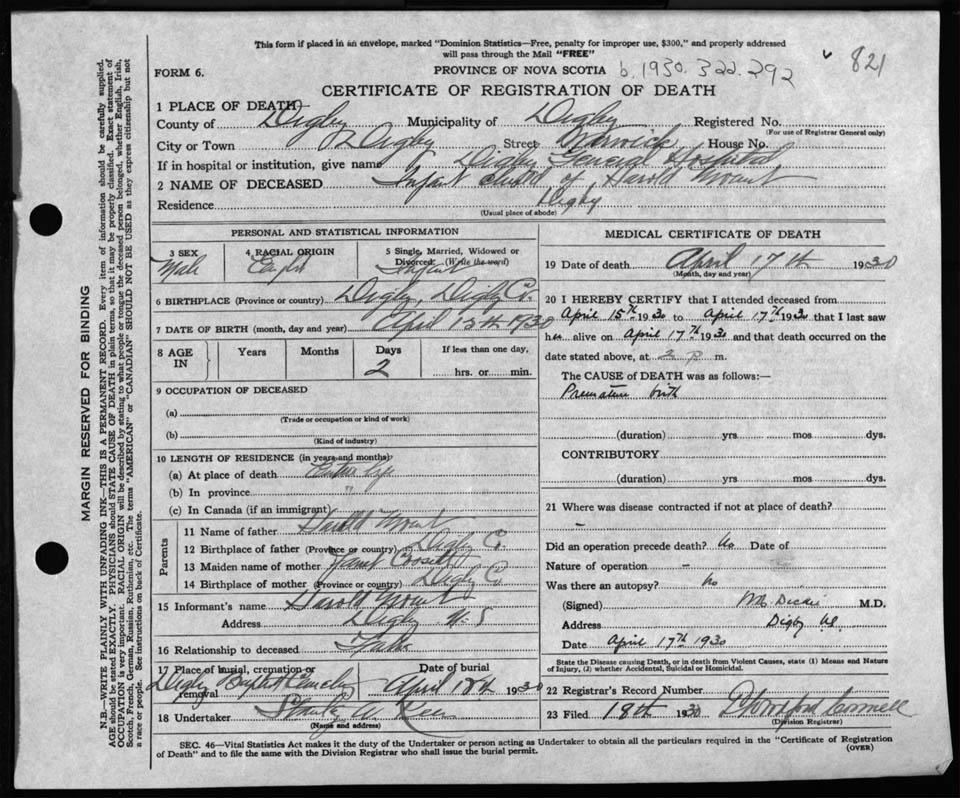 This form if placed in an envelope, marked "Dominion Statistics—Free, penalty for improper use, $300," and properly addressed
will pass through the Mail "FREE"
821
FORM 6.
PROVINCE OF NOVA SCOTIA
b. 1930. 322. 292
CERTIFICATE OF REGISTRATION OF DEATH
1 PLACE OF DEATH—
County of Digby Municipality of Digby Registered No.
(For use of Registrar General only)
City or Town Digby Street Warwick House No.
If in hospital or institution, give name Digby General Hospital
2 NAME OF DECEASED Infant child of Harold
Residence Digby
(Usual place of abode)
PERSONAL AND STATISTICAL INFORMATION
3 SEX
Male
4 RACIAL ORIGIN
English
5 Single, Married, Widowed or
Divorced (Write the word)
Infant
6 BIRTHPLACE (Province or country) Digby, Digby Co.
7 DATE OF BIRTH (month, day and year) April 15th 1930
8 AGE IN
Years
Months
Days
2
If less than one day,
hrs. or min.
9 OCCUPATION OF DECEASED
(a)
(Trade or occupation or kind of work)
(b)
(Kind of industry)
10 LENGTH OF RESIDENCE (in years and months)
(a) At place of death Entire life
(b) In province "
(c) In Canada (if an immigrant)
Parents
11 Name of father Harold
12 Birthplace of father (Province or country) Digby Co.
13 Maiden name of mother
14 Birthplace of mother (Province or country) Digby Co.
15 Informant's name Harold
Address Digby N.S
16 Relationship to deceased Father
17 Place of burial, cremation or
removal
Digby Baptist Cemetery
Date of burial
April 18th 1930
18 Undertaker
(Name and address)
MEDICAL CERTIFICATE OF DEATH
19 Date of death April 17th 1930
(Month, day and year)
20 I HEREBY CERTIFY that I attended deceased from
April 15th 1930 to April 17th 1930 that I last saw
h alive on April 17th 1930 and that death occurred on the
date stated above, at 2 P m.
The CAUSE OF DEATH was as follows:—
Premature birth
(duration) yrs. mos dys.
CONTRIBUTORY
(duration) yrs. mos. dys.
21 Where was disease contracted if not at place of death?
–
Did an operation precede death? No Date of
Nature of operation –
Was there an autopsy? No
(Signed) Dickie M.D.
Address Digby
Date April 17th 1930
State the Disease causing Death, or in death from Violent Causes, state (1) Means and Nature
of Injury, (2) whether Accidental, Suicidal or Homicidal.
22 Registrar's Record Number
23 Filed 18th 1930
(Division Registrar)
SEC. 46—Vital Statistics Act makes it the duty of the Undertaker or person acting as Undertaker to obtain all the particulars required in the "Certificate of Registration
of Death" and to file the same with the Division Registrar who shall issue the burial permit.
(OVER)
MARGIN RESERVED FOR BINDING
N.B.—WRITE PLAINLY WITH UNFADING INK—THIS IS A PERMANENT RECORD. Every item of information should be carefully supplied.
AGE should be stated EXACTLY. PHYSICIANS should STATE CAUSE OF DEATH in plain terms, so that it may be properly classified. Exact statement of
OCCUPATION is very important. RACIAL ORIGIN will be described by stating to what people or tongue the deceased person belonged, whether English, Irish,
Scotch, French, German, Russian, Ruthenian, etc. The terms "AMERICAN" or "CANADIAN" SHOULD NOT BE USED as they express citizenship but not
a race or people. See instructions on back of Certificate.